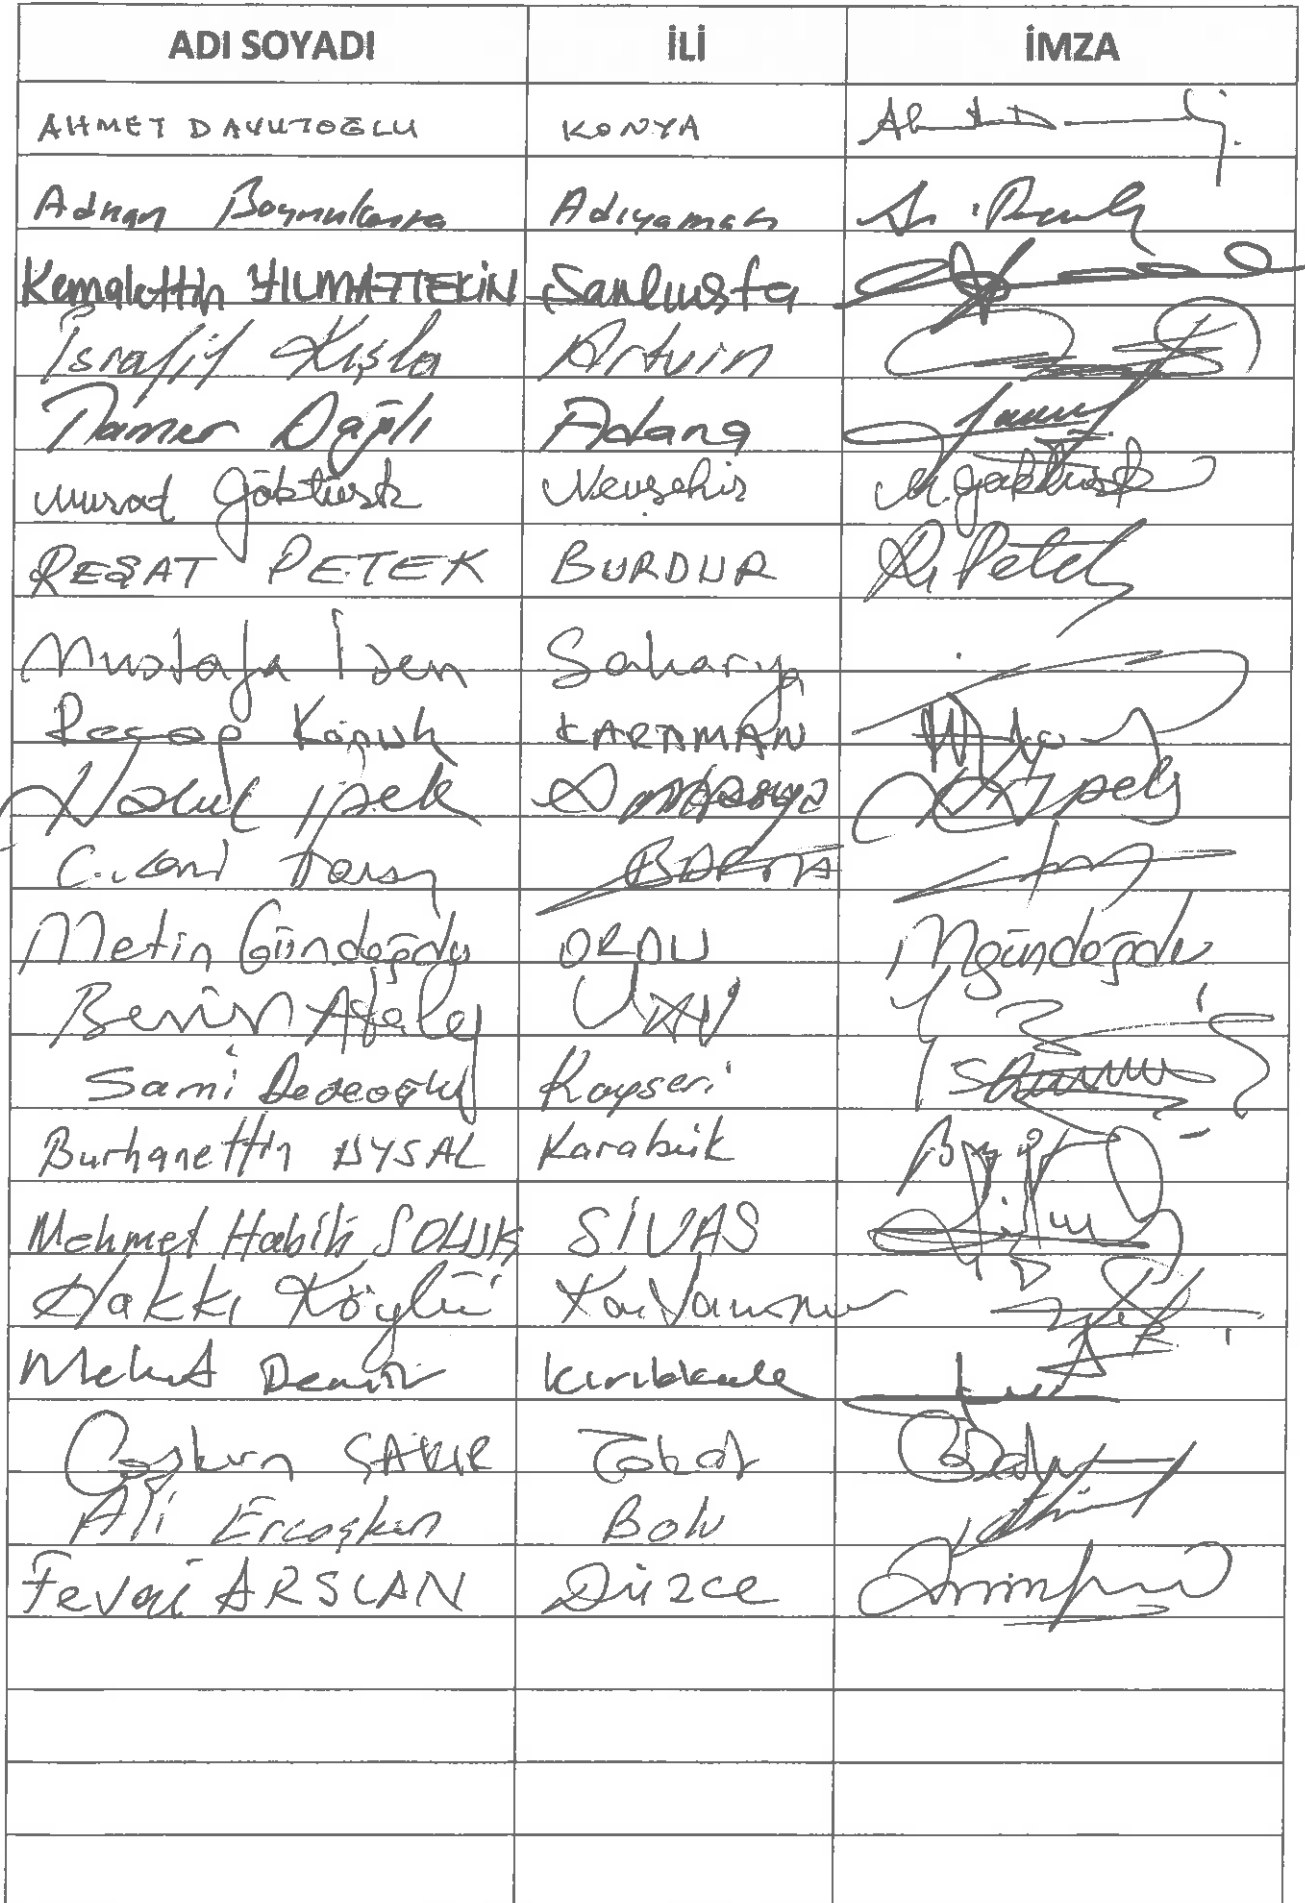 ADI SOYADI İLİ İMZA
AHMET DAVUTOĞLU KONYA
Adnan Boynukara Adıyaman
Kemalettin YILMAZTEKİN Şanlıurfa
İsrafil Kışla Artvin
Tamer Dağlı Adana
Murad Göktürk Nevşehir M. Göktürk
REŞAT PETEK BURDUR R. Petek
Mustafa İsen Sakarya
Recep Konuk KARAMAN
Haluk ipek Amasya H. ipek
Metin Gündoğdu ORDU MGündoğdu
Sami Dedeoğlu Kayseri
Burhanettin UYSAL Karabük
Mehmet Habib SOLUK SİVAS
Hakkı Köylü Kastamonu
Mehmet Demir Kırıkkale
Coşkun ÇAKIR Tokat
Ali Ercoşkun Bolu
Fevai ARSLAN Düzce